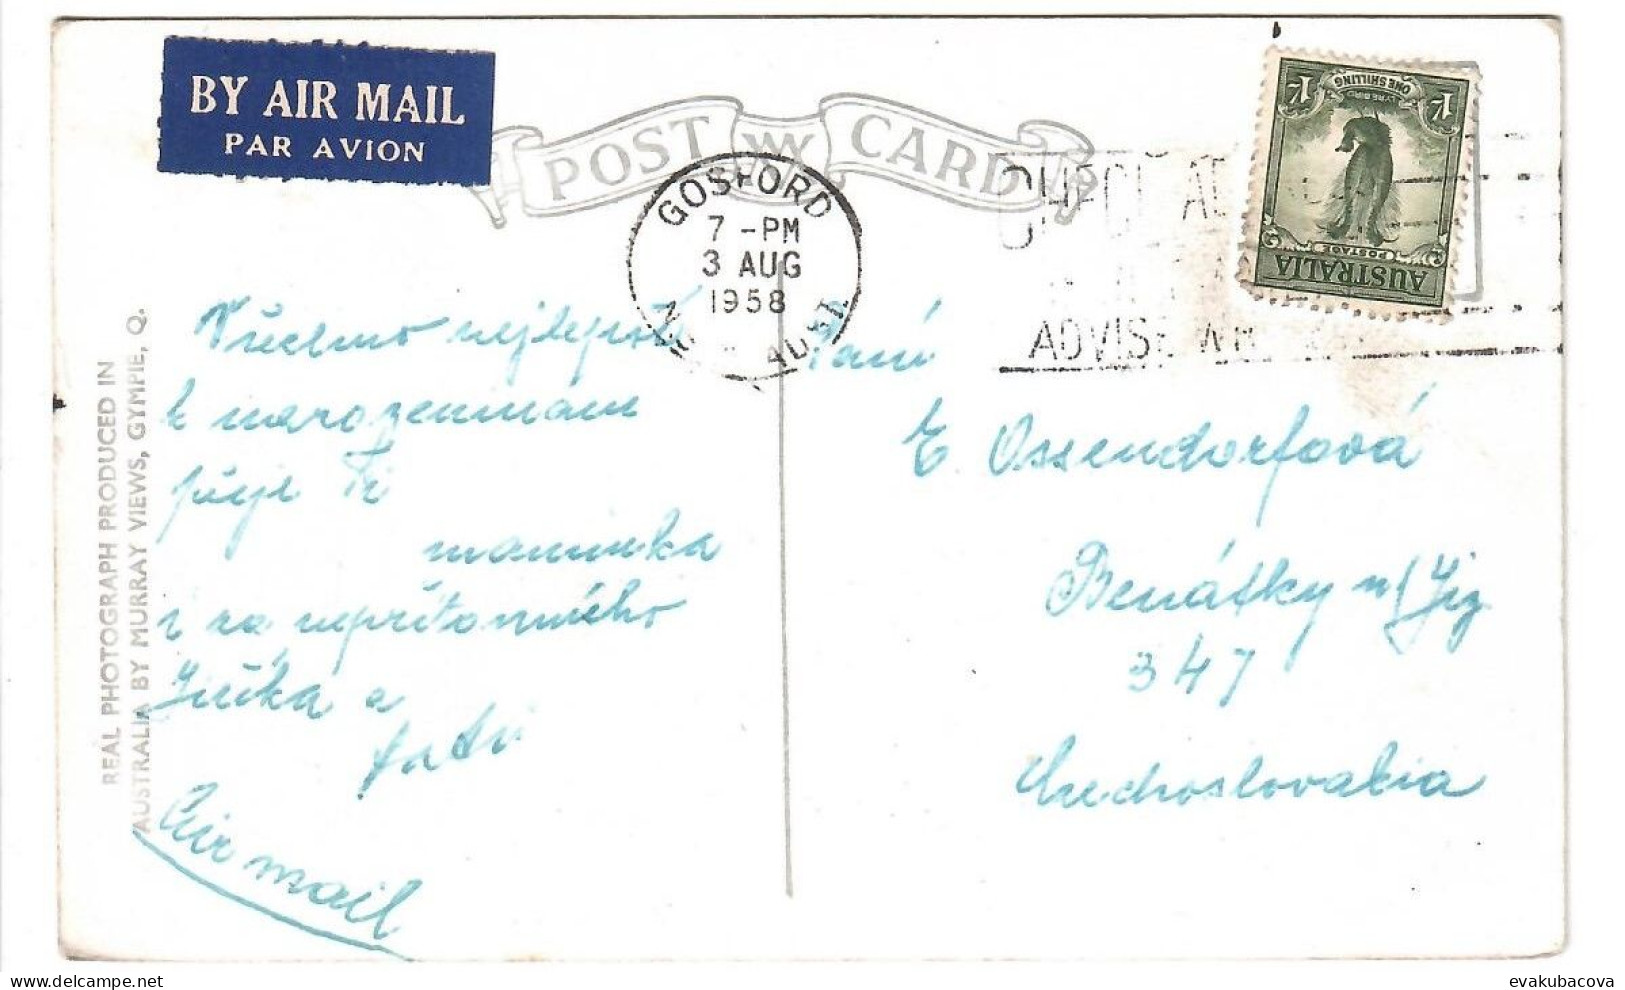 BY AIR MAIL
PAR AVION
POST CARD
GOSFORD
7 - PM
3 AUG
1958
N AUST
ADVISE
1/- ONE SHILLING 1/-
LYREBIRD
POSTAGE
AUSTRALIA
REAL PHOTOGRAPH PRODUCED IN
AUSTRALIA BY MURRAY VIEWS, GYMPIE, Q.
Všechno nejlepší
k narozeninám
přeje Ti
maminka
i za nepřítomného
Jiříka a
tati
Air mail
Paní
E. Ossendorfová
Benátky n/Jiz
347
Czechoslovakia
evakubacova